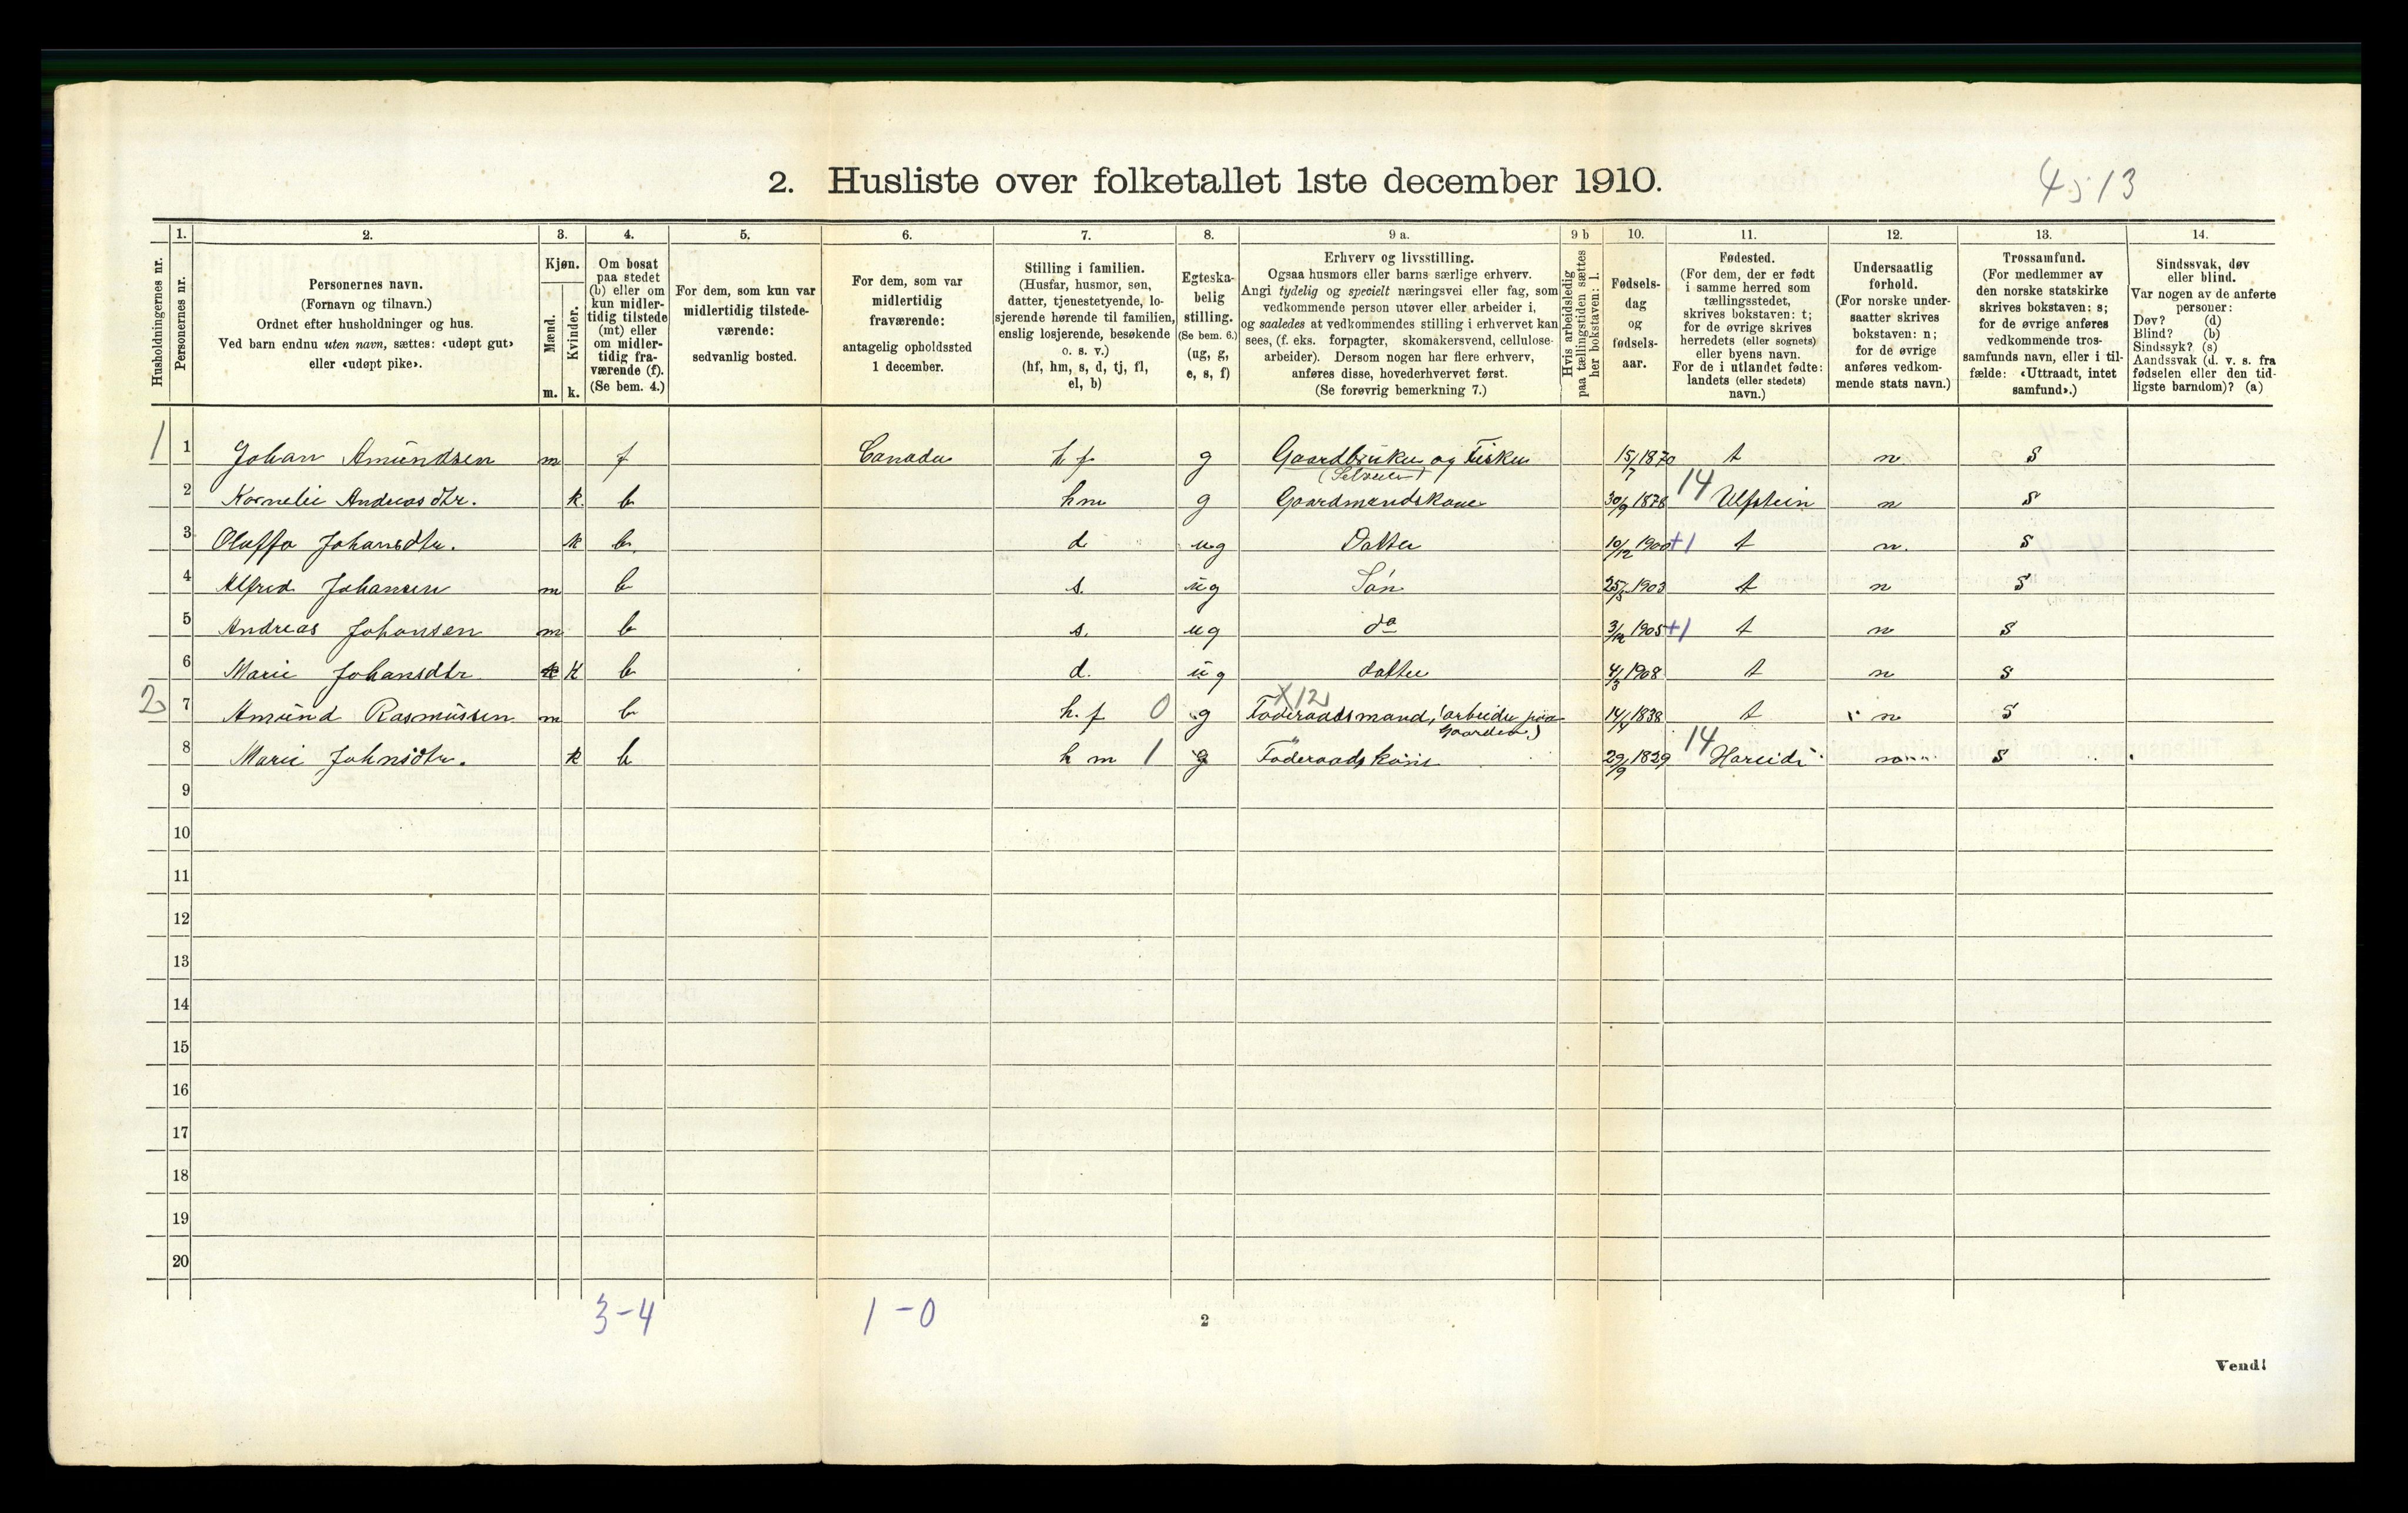 2. Husliste over folketallet 1ste december 1910.
4513
Husholdningernes nr.
1. Personernes nr.
2. Personernes navn.
(Fornavn og tilnavn.)
Ordnet efter husholdninger og hus.
Ved barn endnu uten navn, sættes: «udøpt gut»
eller «udøpt pike».
3. Kjøn.
Mænd. Kvinder.
m. k.
4. Om bosat
paa stedet
(b) eller om
kun midler-
tidig tilstede
(mt) eller
om midler-
tidig fra-
værende (f).
(Se bem. 4.)
5. For dem, som kun var
midlertidig tilstede-
værende:
sedvanlig bosted.
6. For dem, som var
midlertidig
fraværende:
antagelig opholdssted
1 december.
7. Stilling i familien.
(Husfar, husmor, søn,
datter, tjenestetyende, lo-
sjerende hørende til familien,
enslig losjerende, besøkende
o. s. v.)
(hf, hm, s, d, tj, fl,
el, b)
8. Egteska-
belig
stilling.
(Se bem. 6.)
(ug, g,
e, s, f)
9 a. Erhverv og livsstilling.
Ogsaa husmors eller barns særlige erhverv.
Angi tydelig og specielt næringsvei eller fag, som
vedkommende person utøver eller arbeider i,
og saaledes at vedkommendes stilling i erhvervet kan
sees, (f. eks. forpagter, skomakersvend, cellulose-
arbeider). Dersom nogen har flere erhverv,
anføres disse, hovederhvervet først.
(Se forøvrig bemerkning 7.)
9 b Hvis arbeidsledig
paa tællingstiden sættes
her bokstaven: l.
10. Fødsels-
dag
og
fødsels-
aar.
11. Fødested.
(For dem, der er født
i samme herred som
tællingsstedet,
skrives bokstaven: t;
for de øvrige skrives
herredets (eller sognets)
eller byens navn.
For de i utlandet fødte:
landets (eller stedets)
navn.)
12. Undersaatlig
forhold.
(For norske under-
saatter skrives
bokstaven: n;
for de øvrige
anføres vedkom-
mende stats navn.)
13. Trossamfund.
(For medlemmer av
den norske statskirke
skrives bokstaven: s;
for de øvrige anføres
vedkommende tros-
samfunds navn, eller i til-
fælde: «Uttraadt, intet
samfund».)
14. Sindssvak, døv
eller blind.
Var nogen av de anførte
personer:
Døv? (d)
Blind? (b)
Sindssyk? (s)
Aandssvak (d. v. s. fra
fødselen eller den tid-
ligste barndom)? (a)
1 1 Johan Amundsen m f Canada hf g Gaardbruker og Fisker 15/7 1870 t n s
(Selveier)
2 Kornelie Andreasdtr. k b hm g Gaardmandskone 30/9 1876 14 Ulfstein n s
3 Oluffa Johansdtr. k b d ug Datter 10/12 1900 +1 t n. s
4 Alfred Johansen m b s. ug Søn 25/5 1903 t n s
5 Andreas Johansen m b s. ug do 3/12 1905 +1 t n s
6 Marie Johansdtr k b d. ug datter 4/3 1908 t n s
X12
2 7 Amund Rasmussen m b h.f 0 g Føderaadsmand, (arbeider paa 14/4 1838 t n s
Gaarden)
8 Marie Johnsdtr. k b hm 1 g Føderaadskone 29/9 1829 14 Hareid n s
9
10
11
12
13
14
15
16
17
18
19
20
3-4 1-0
2
Vend!